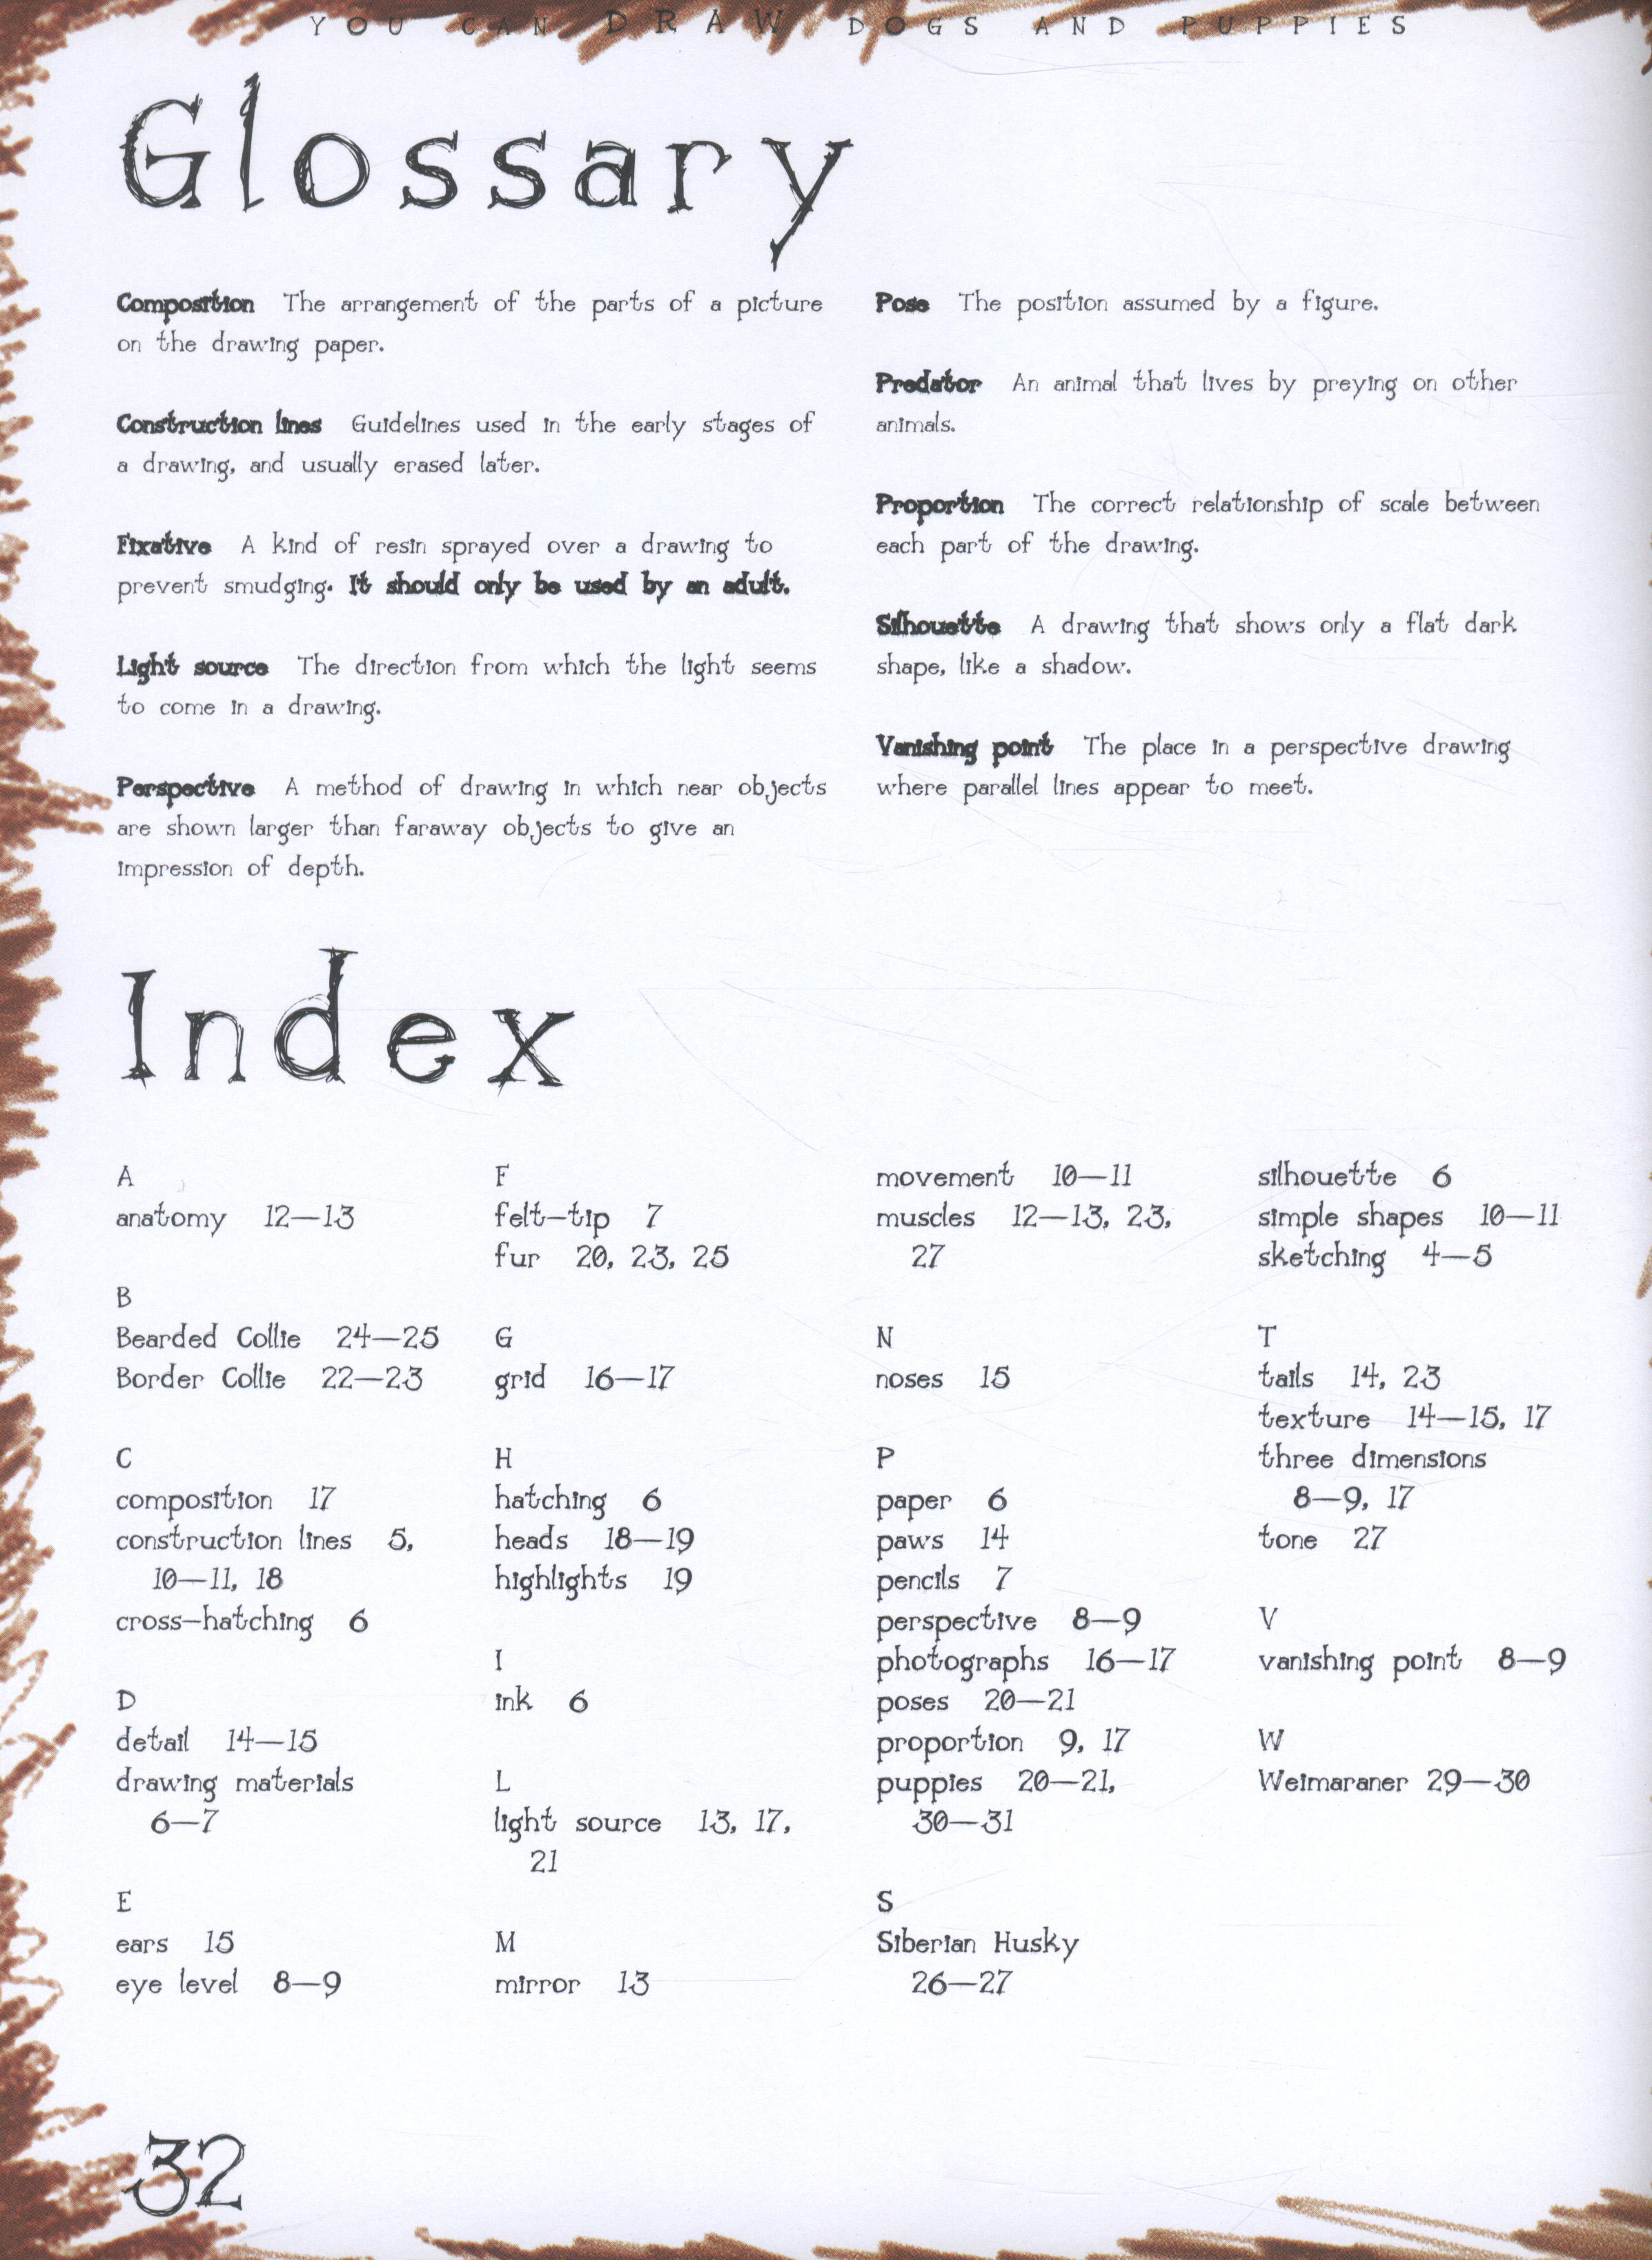 YOU CAN DRAW DOGS AND PUPPIES
Glossary
Composition The arrangement of the parts of a picture
on the drawing paper.
Construction lines Guidelines used in the early stages of
a drawing, and usually erased later.
Fixative A kind of resin sprayed over a drawing to
prevent smudging. It should only be used by an adult.
Light source The direction from which the light seems
to come in a drawing.
Perspective A method of drawing in which near objects
are shown larger than faraway objects to give an
impression of depth.
Pose The position assumed by a figure.
Predator An animal that lives by preying on other
animals.
Proportion The correct relationship of scale between
each part of the drawing.
Silhouette A drawing that shows only a flat dark
shape, like a shadow.
Vanishing point The place in a perspective drawing
where parallel lines appear to meet.
Index
A
anatomy 12—13
B
Bearded Collie 24—25
Border Collie 22—23
C
composition 17
construction lines 5,
10—11, 18
cross-hatching 6
D
detail 14—15
drawing materials
6—7
E
ears 15
eye level 8—9
F
felt-tip 7
fur 20, 23, 25
G
grid 16—17
H
hatching 6
heads 18—19
highlights 19
I
ink 6
L
light source 13, 17,
21
M
mirror 13
movement 10—11
muscles 12—13, 23,
27
N
noses 15
P
paper 6
paws 14
pencils 7
perspective 8—9
photographs 16—17
poses 20—21
proportion 9, 17
puppies 20—21,
30—31
S
Siberian Husky
26—27
silhouette 6
simple shapes 10—11
sketching 4—5
T
tails 14, 23
texture 14—15, 17
three dimensions
8—9, 17
tone 27
V
vanishing point 8—9
W
Weimaraner 29—30
32